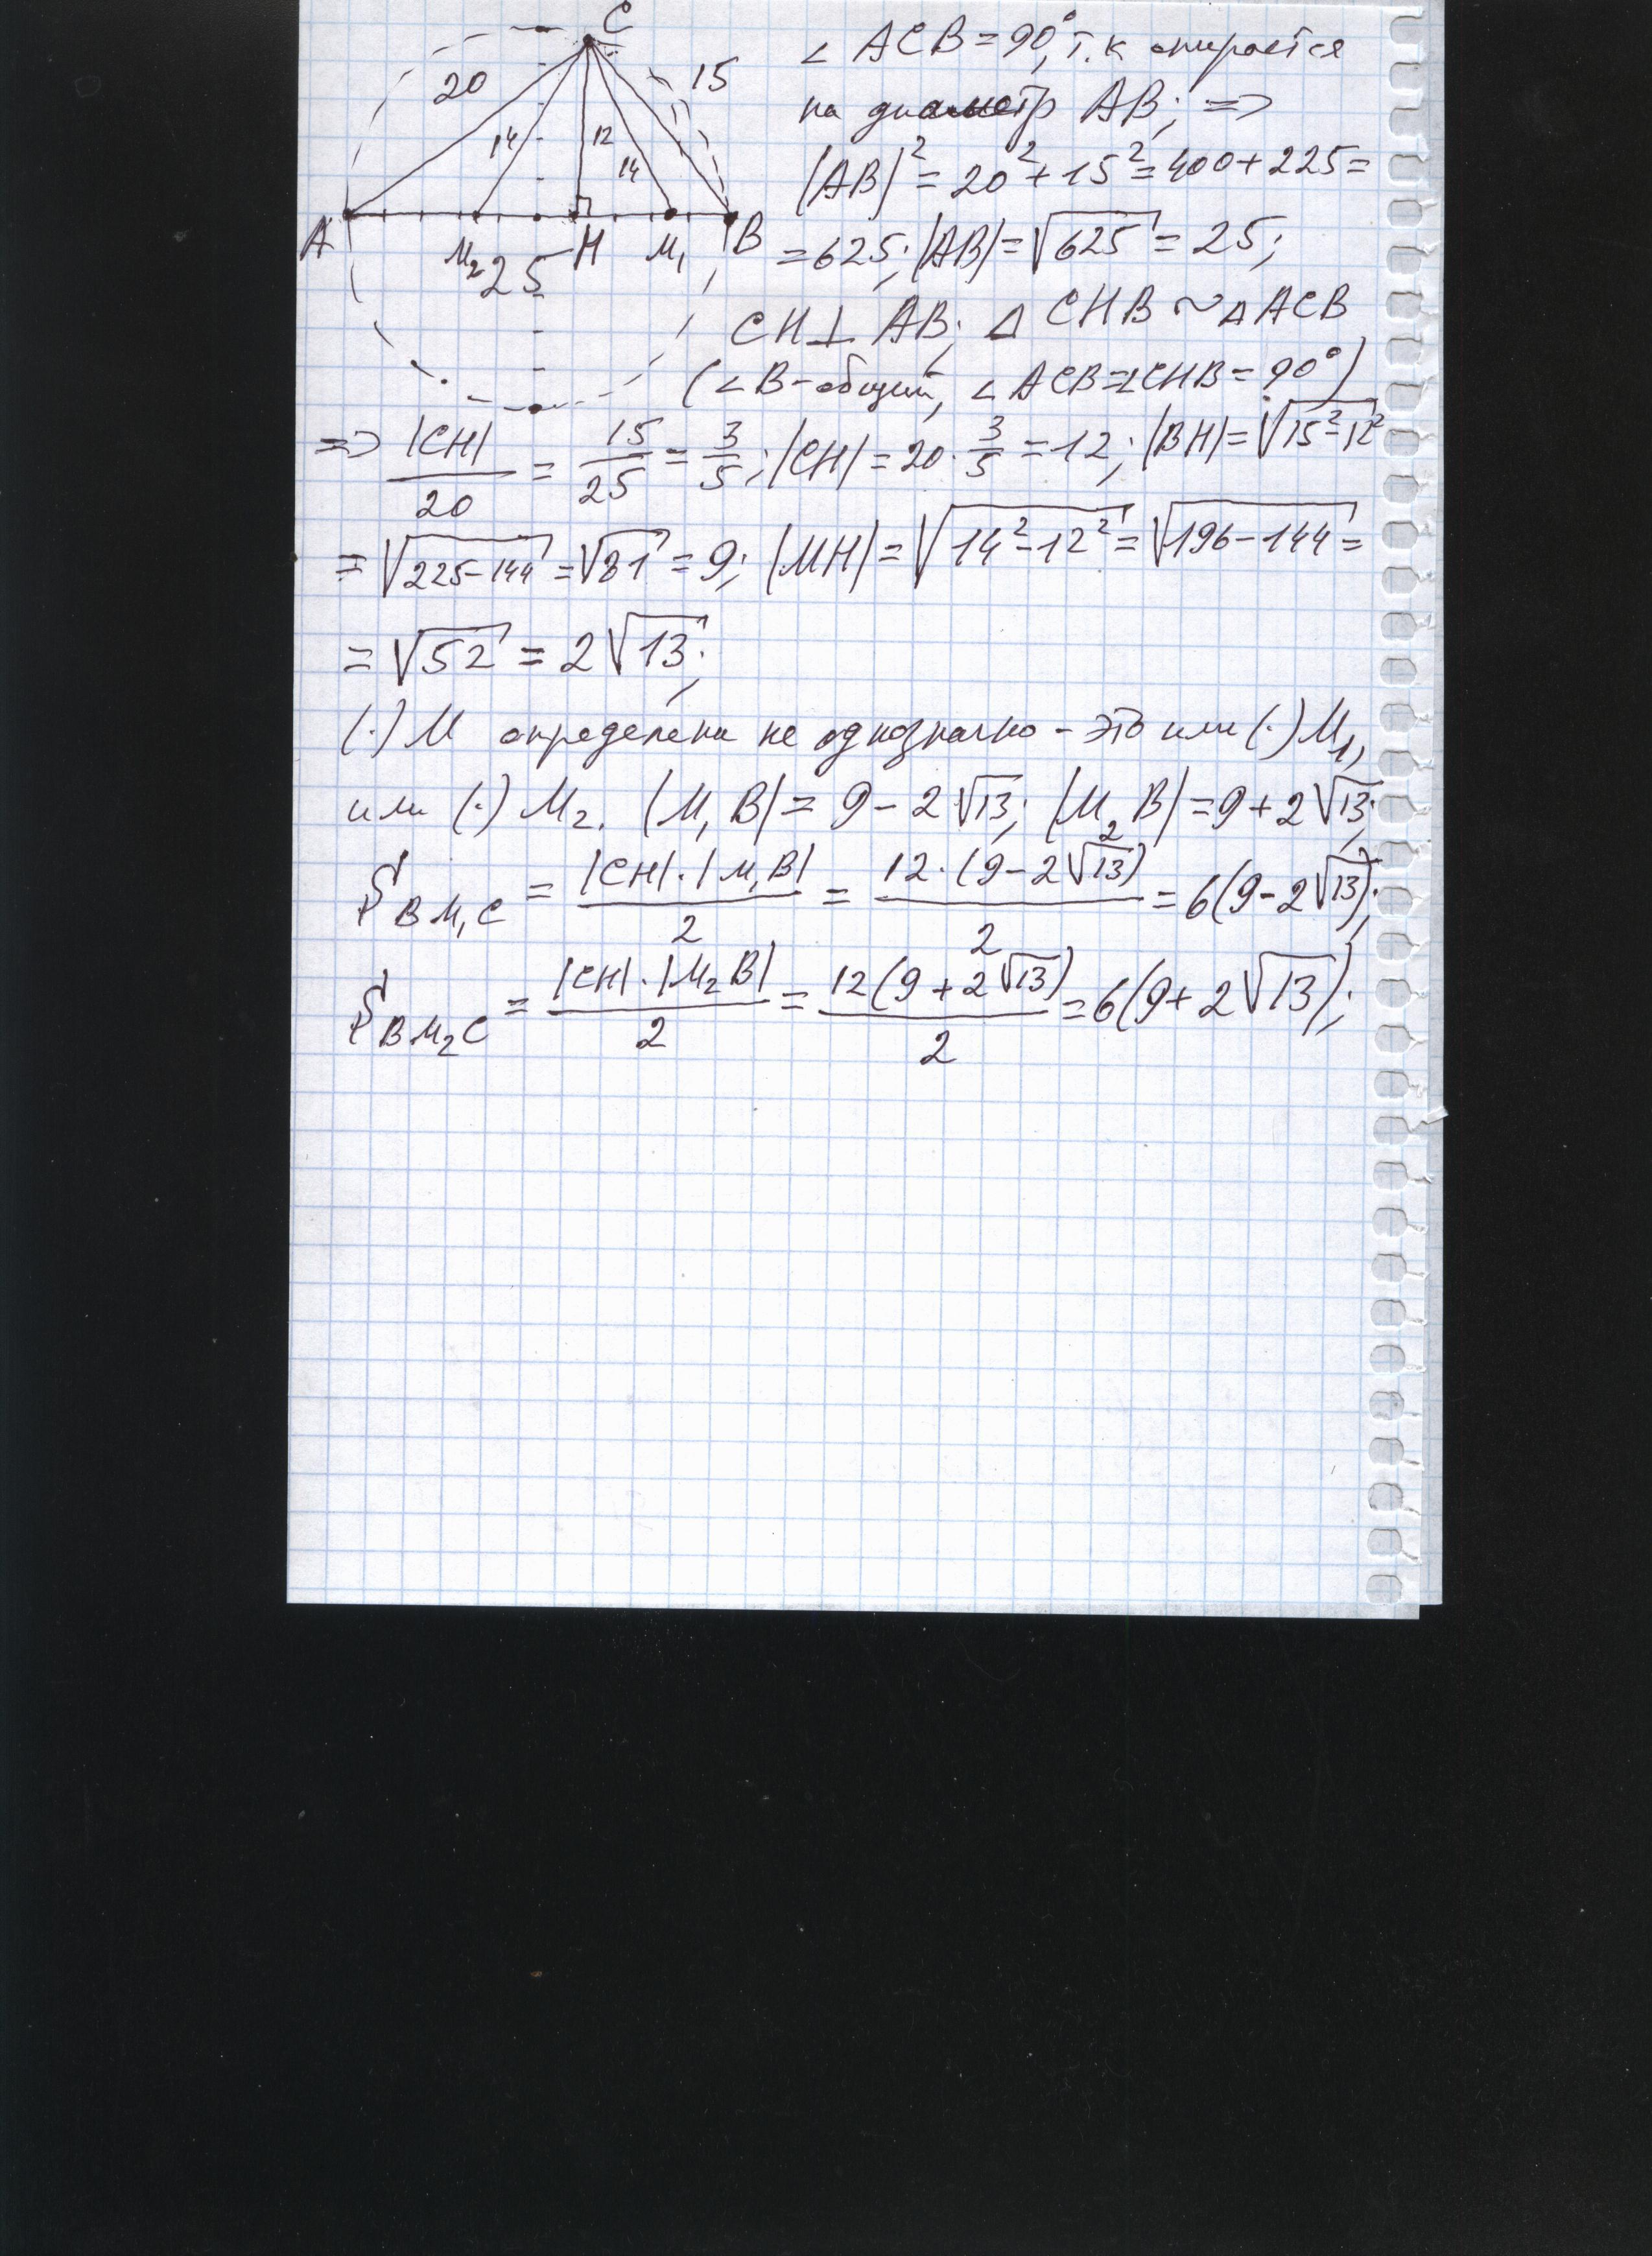 C
20
15
14
12
14
A
M₂
H
M₁
B
25
∠ ACB = 90°, т.к опирается
на диаметр AB; =>
|AB|² = 20² + 15² = 400 + 225 =
= 625; |AB| = √625 = 25;
CH ⊥ AB; △ CHB ~ △ ACB
(∠B - общий, ∠ACB = ∠CHB = 90°)
=> |CH|/20 = 15/25 = 3/5; |CH| = 20 · 3/5 = 12; |BH| = √(15² - 12²)
= √(225 - 144) = √81 = 9; |MH| = √(14² - 12²) = √(196 - 144) =
= √52 = 2√13;
(·) M определена не однозначно - это или (·) M₁,
или (·) M₂. |M₁B| = 9 - 2√13; |M₂B| = 9 + 2√13;
S_BM₁C = |CH| · |M₁B| / 2 = 12 · (9 - 2√13) / 2 = 6(9 - 2√13);
S_BM₂C = |CH| · |M₂B| / 2 = 12(9 + 2√13) / 2 = 6(9 + 2√13);